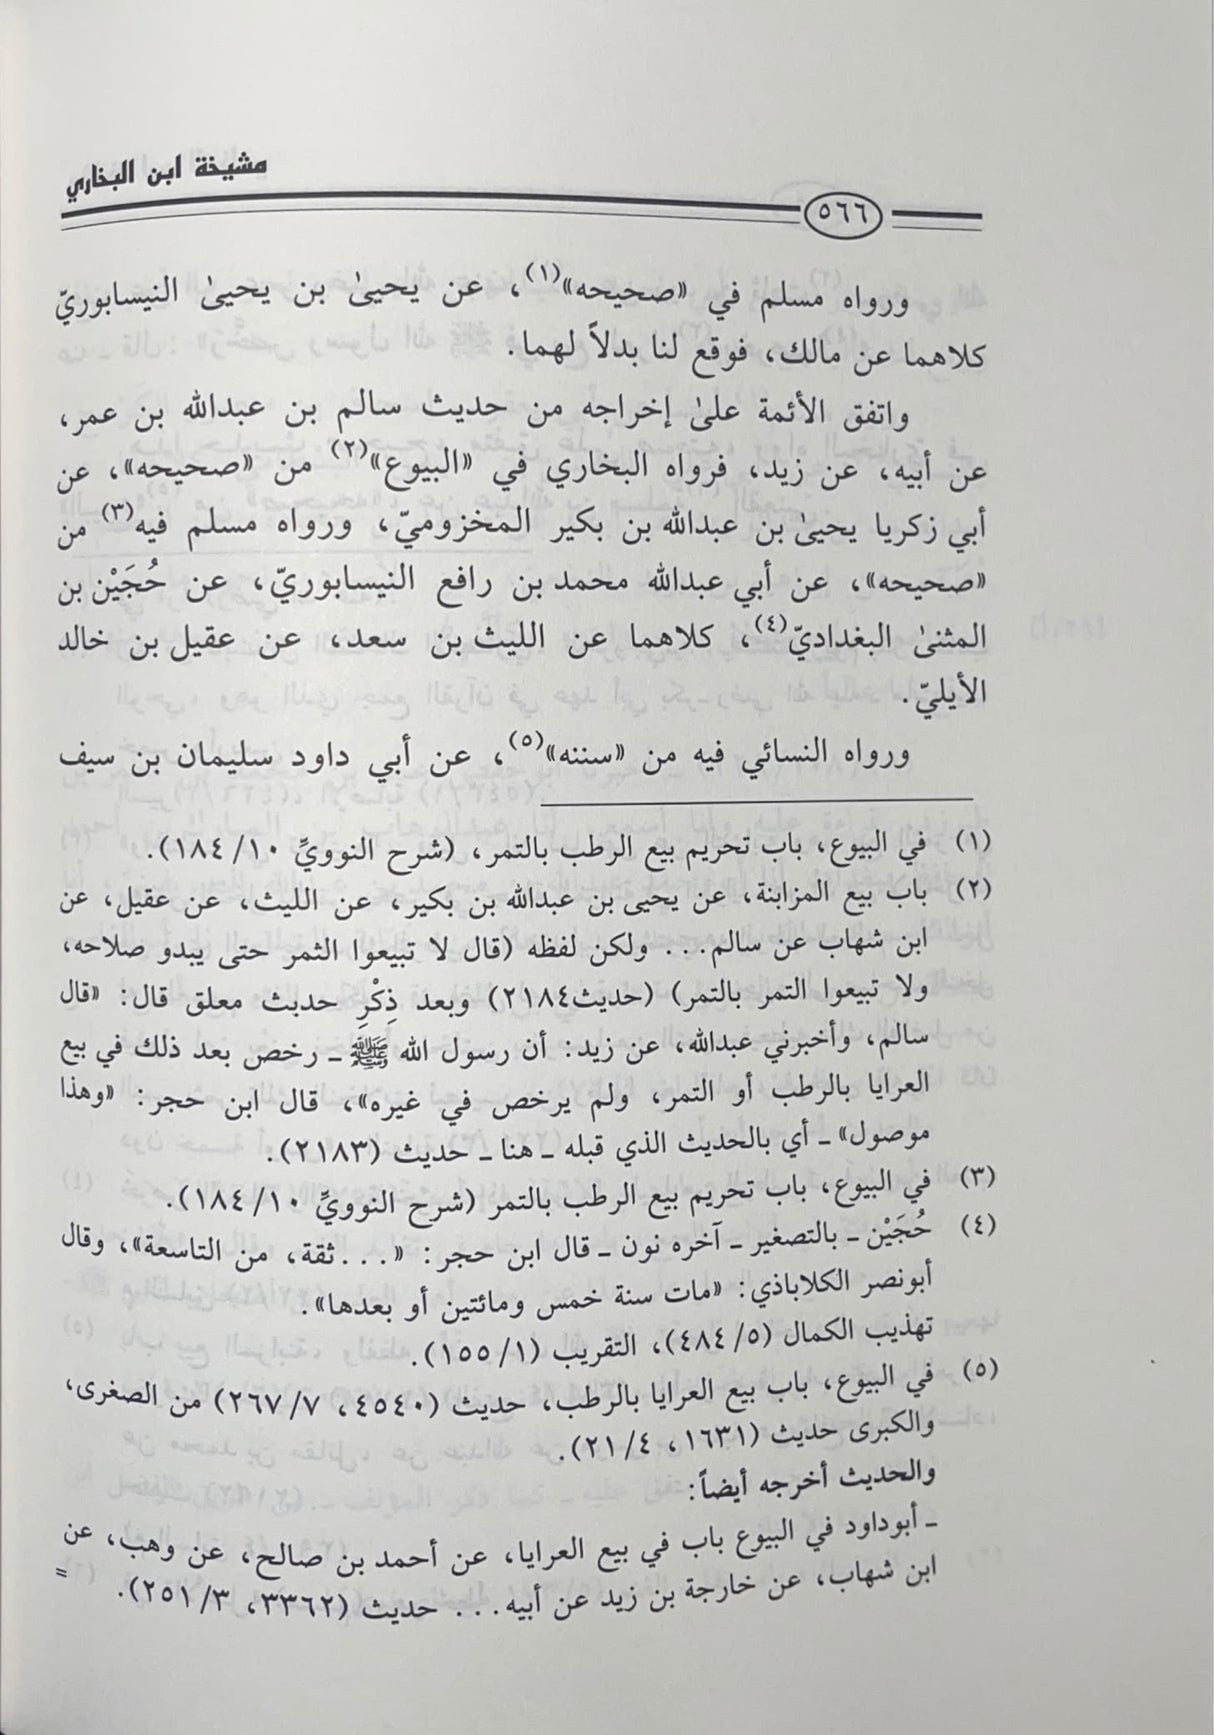 مشيخة ابن البخاري
٥٦٦
ورواه مسلم في «صحيحه»(١)، عن يحيىٰ بن يحيىٰ النيسابوريّ
كلاهما عن مالك، فوقع لنا بدلاً لهما.
واتفق الأئمة علىٰ إخراجه من حديث سالم بن عبدالله بن عمر،
عن أبيه، عن زيد، فرواه البخاري في «البيوع»(٢) من «صحيحه»، عن
أبي زكريا يحيىٰ بن عبدالله بن بكير المخزوميّ، ورواه مسلم فيه(٣) من
«صحيحه»، عن أبي عبدالله محمد بن رافع النيسابوريّ، عن حُجَيْن بن
المثنىٰ البغداديّ(٤)، كلاهما عن الليث بن سعد، عن عقيل بن خالد
الأيليّ.
ورواه النسائي فيه من «سننه»(٥)، عن أبي داود سليمان بن سيف
(١) في البيوع، باب تحريم بيع الرطب بالتمر، (شرح النوويِّ ١٠/ ١٨٤).
(٢) باب بيع المزابنة، عن يحيى بن عبدالله بن بكير، عن الليث، عن عقيل، عن
ابن شهاب عن سالم... ولكن لفظه (قال لا تبيعوا الثمر حتى يبدو صلاحه،
ولا تبيعوا التمر بالتمر) (حديث٢١٨٤) وبعد ذِكْرِ حديث معلق قال: «قال
سالم، وأخبرني عبدالله، عن زيد: أن رسول الله ﷺ ـ رخص بعد ذلك في بيع
العرايا بالرطب أو التمر، ولم يرخص في غيره»، قال ابن حجر: «وهذا
موصول» ـ أي بالحديث الذي قبله ـ هنا ـ حديث (٢١٨٣).
(٣) في البيوع، باب تحريم بيع الرطب بالتمر (شرح النوويِّ ١٠/ ١٨٤).
(٤) حُجَيْن ـ بالتصغير ـ آخره نون ـ قال ابن حجر: «...ثقة، من التاسعة»، وقال
أبونصر الكلاباذي: «مات سنة خمس ومائتين أو بعدها».
تهذيب الكمال (٥/ ٤٨٤)، التقريب (١/ ١٥٥).
(٥) في البيوع، باب بيع العرايا بالرطب، حديث (٤٥٤٠، ٧/ ٢٦٧) من الصغرى،
والكبرى حديث (١٦٣١، ٤/ ٢١).
والحديث أخرجه أيضاً:
ـ أبوداود في البيوع باب في بيع العرايا، عن أحمد بن صالح، عن وهب، عن
ابن شهاب، عن خارجة بن زيد عن أبيه... حديث (٣٣٦٢، ٣/ ٢٥١). =